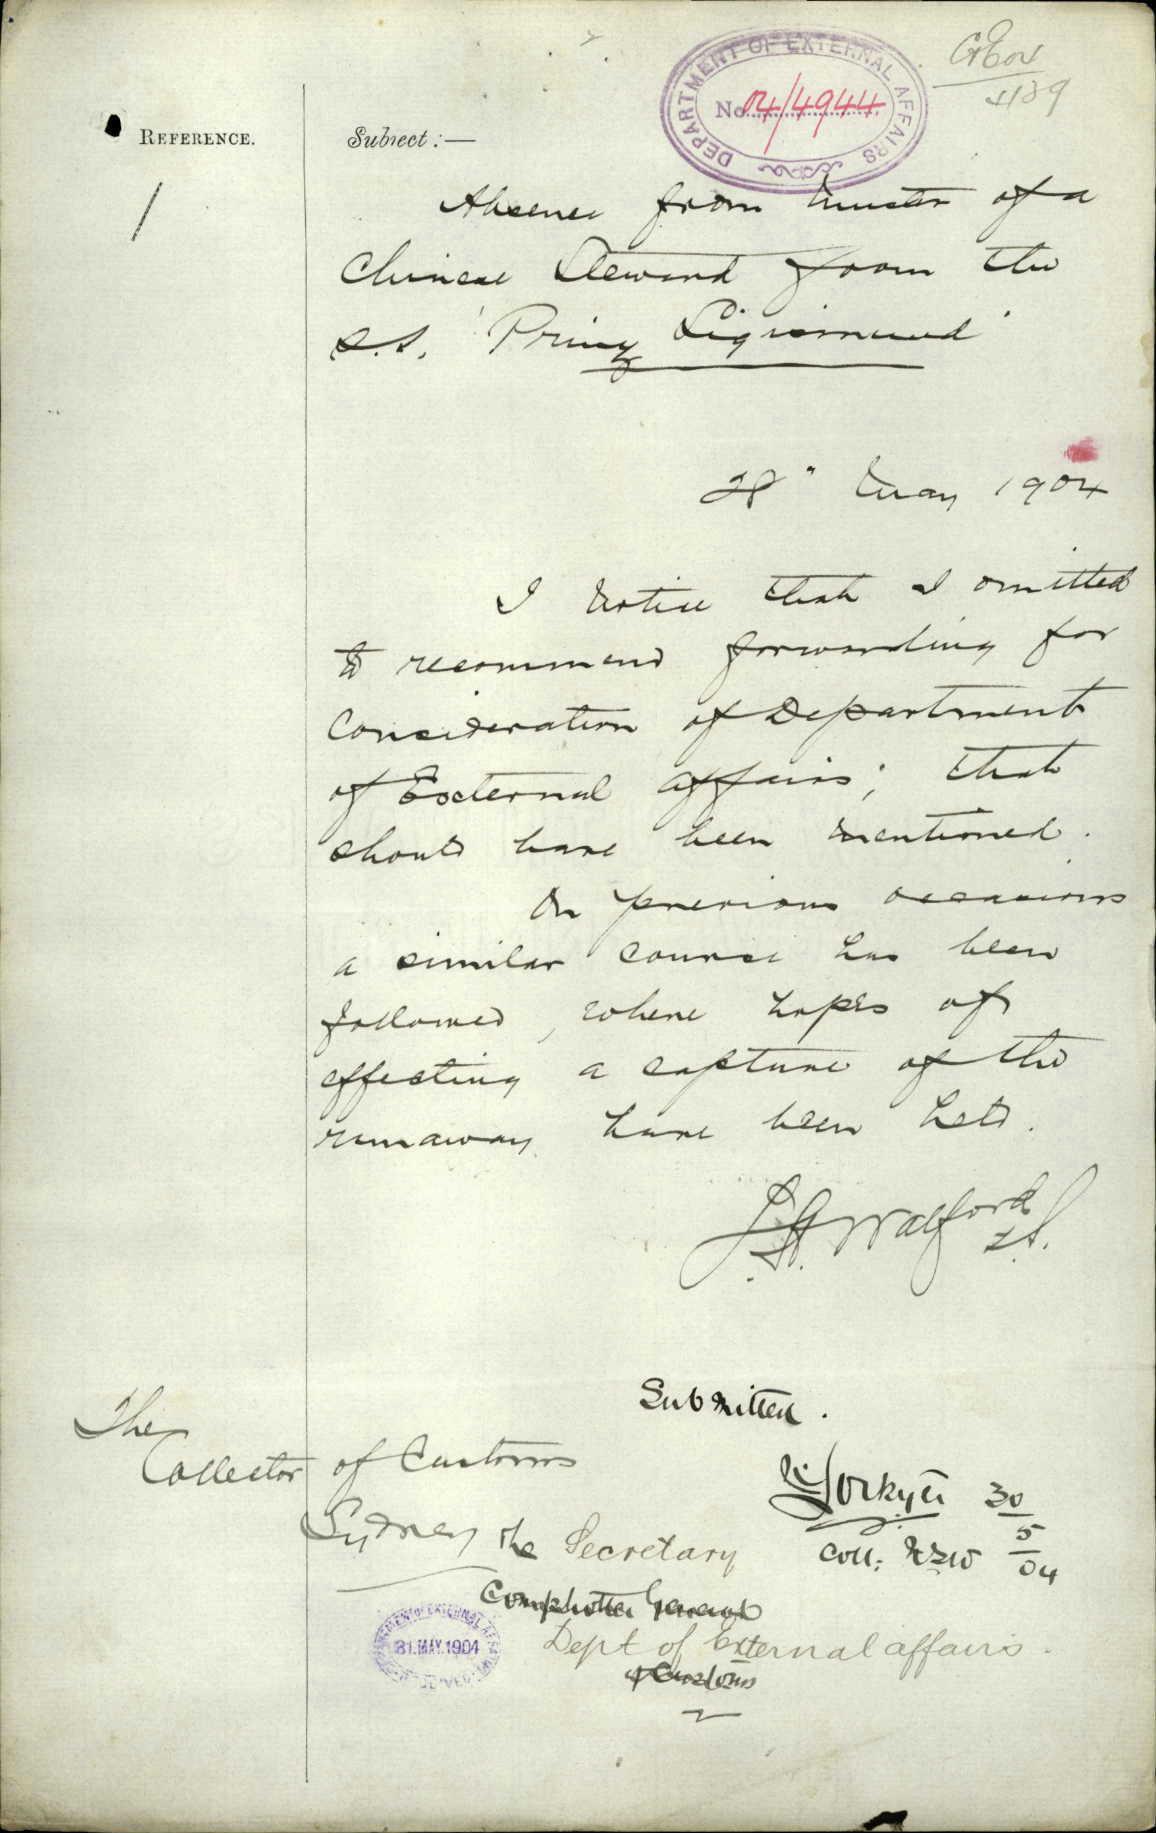 DEPARTMENT OF EXTERNAL AFFAIRS
No 04/4944
4139
REFERENCE.
Subject:—
Absence from Muster of a
Chinese Steward from the
s.s. 'Prinz Sigismund'
28" May 1904
I notice that I omitted
to recommend forwarding for
Consideration of Department
of External Affairs; that
should have been mentioned.
On previous occasions
a similar course has been
followed, where hopes of
effecting a capture of the
runaway have been held.
J.A. Walford
The
Collector of Customs
Sydney
Submitted.
30
5
04
Coll: NSW
The Secretary
Comptroller General
Dept of External affairs.
of Customs
31. MAY. 1904